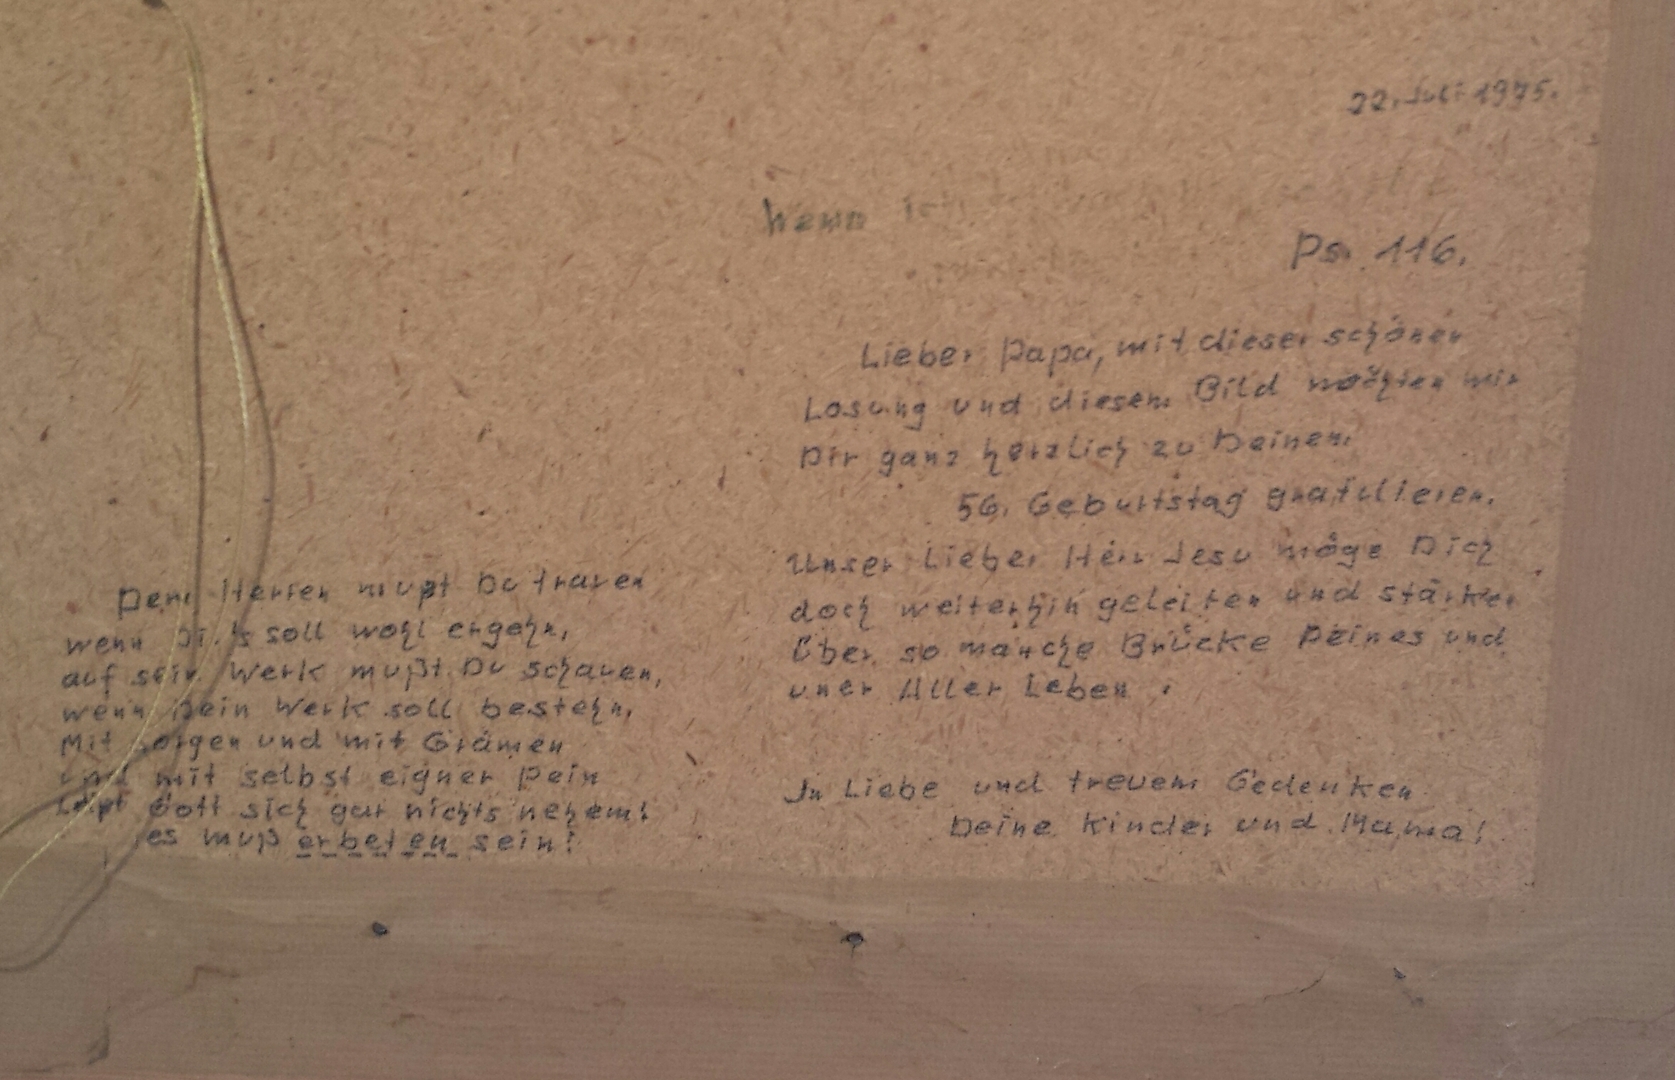 22. Juli 1975.
Wenn ich
Ps. 116.
Lieber Papa, mit dieser schönen
Losung und diesem Bild möchten wir
Dir ganz herzlich zu Deinem
56. Geburtstag gratulieren.
Unser Lieber Herr Jesu möge Dich
doch weiterhin geleiten und stärken
über so manche Brücke Deines und
uner Aller Leben.
In Liebe und treuem Gedenken
Deine Kinder und Mama!
Dem Herren mußt Du trauen
wenn Dir's soll wohl ergehn,
auf sein Werk mußt Du schauen,
wenn Dein Werk soll bestehn,
Mit Sorgen und mit Grämen
und mit selbst eigner Pein
Läßt Gott sich gar nichts nehem!
es muß erbeten sein!